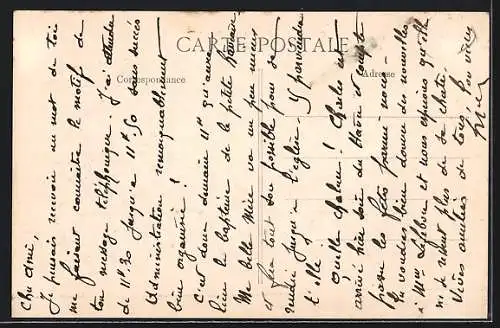 CARTE POSTALE
Correspondance
Adresse
Cher ami,
Je pensais recevoir un mot de toi
me faisant connaître le motif de
ton message téléphonique. J'ai attendu
de 11h 30 jusqu'à 11h 50 sans succès
Administration remarquablement
bien organisée !
C'est donc demain 11h qu'aura
lieu le baptême de la petite
Ma belle Mère va un peu mieux
et fera tout son possible pour se
rendre jusqu'à l'église. Y parviendra
t'elle ?
Quelle chaleur ! Charles est
arrivé hier soir du Havre et compte
passer les fêtes parmi nous.
Tu voudras bien donner des nouvelles
à Mme Lefebvre et nous espérons qu'elle
ne se ressent plus de sa chute.
Vives amitiés de tous. Ton vieux